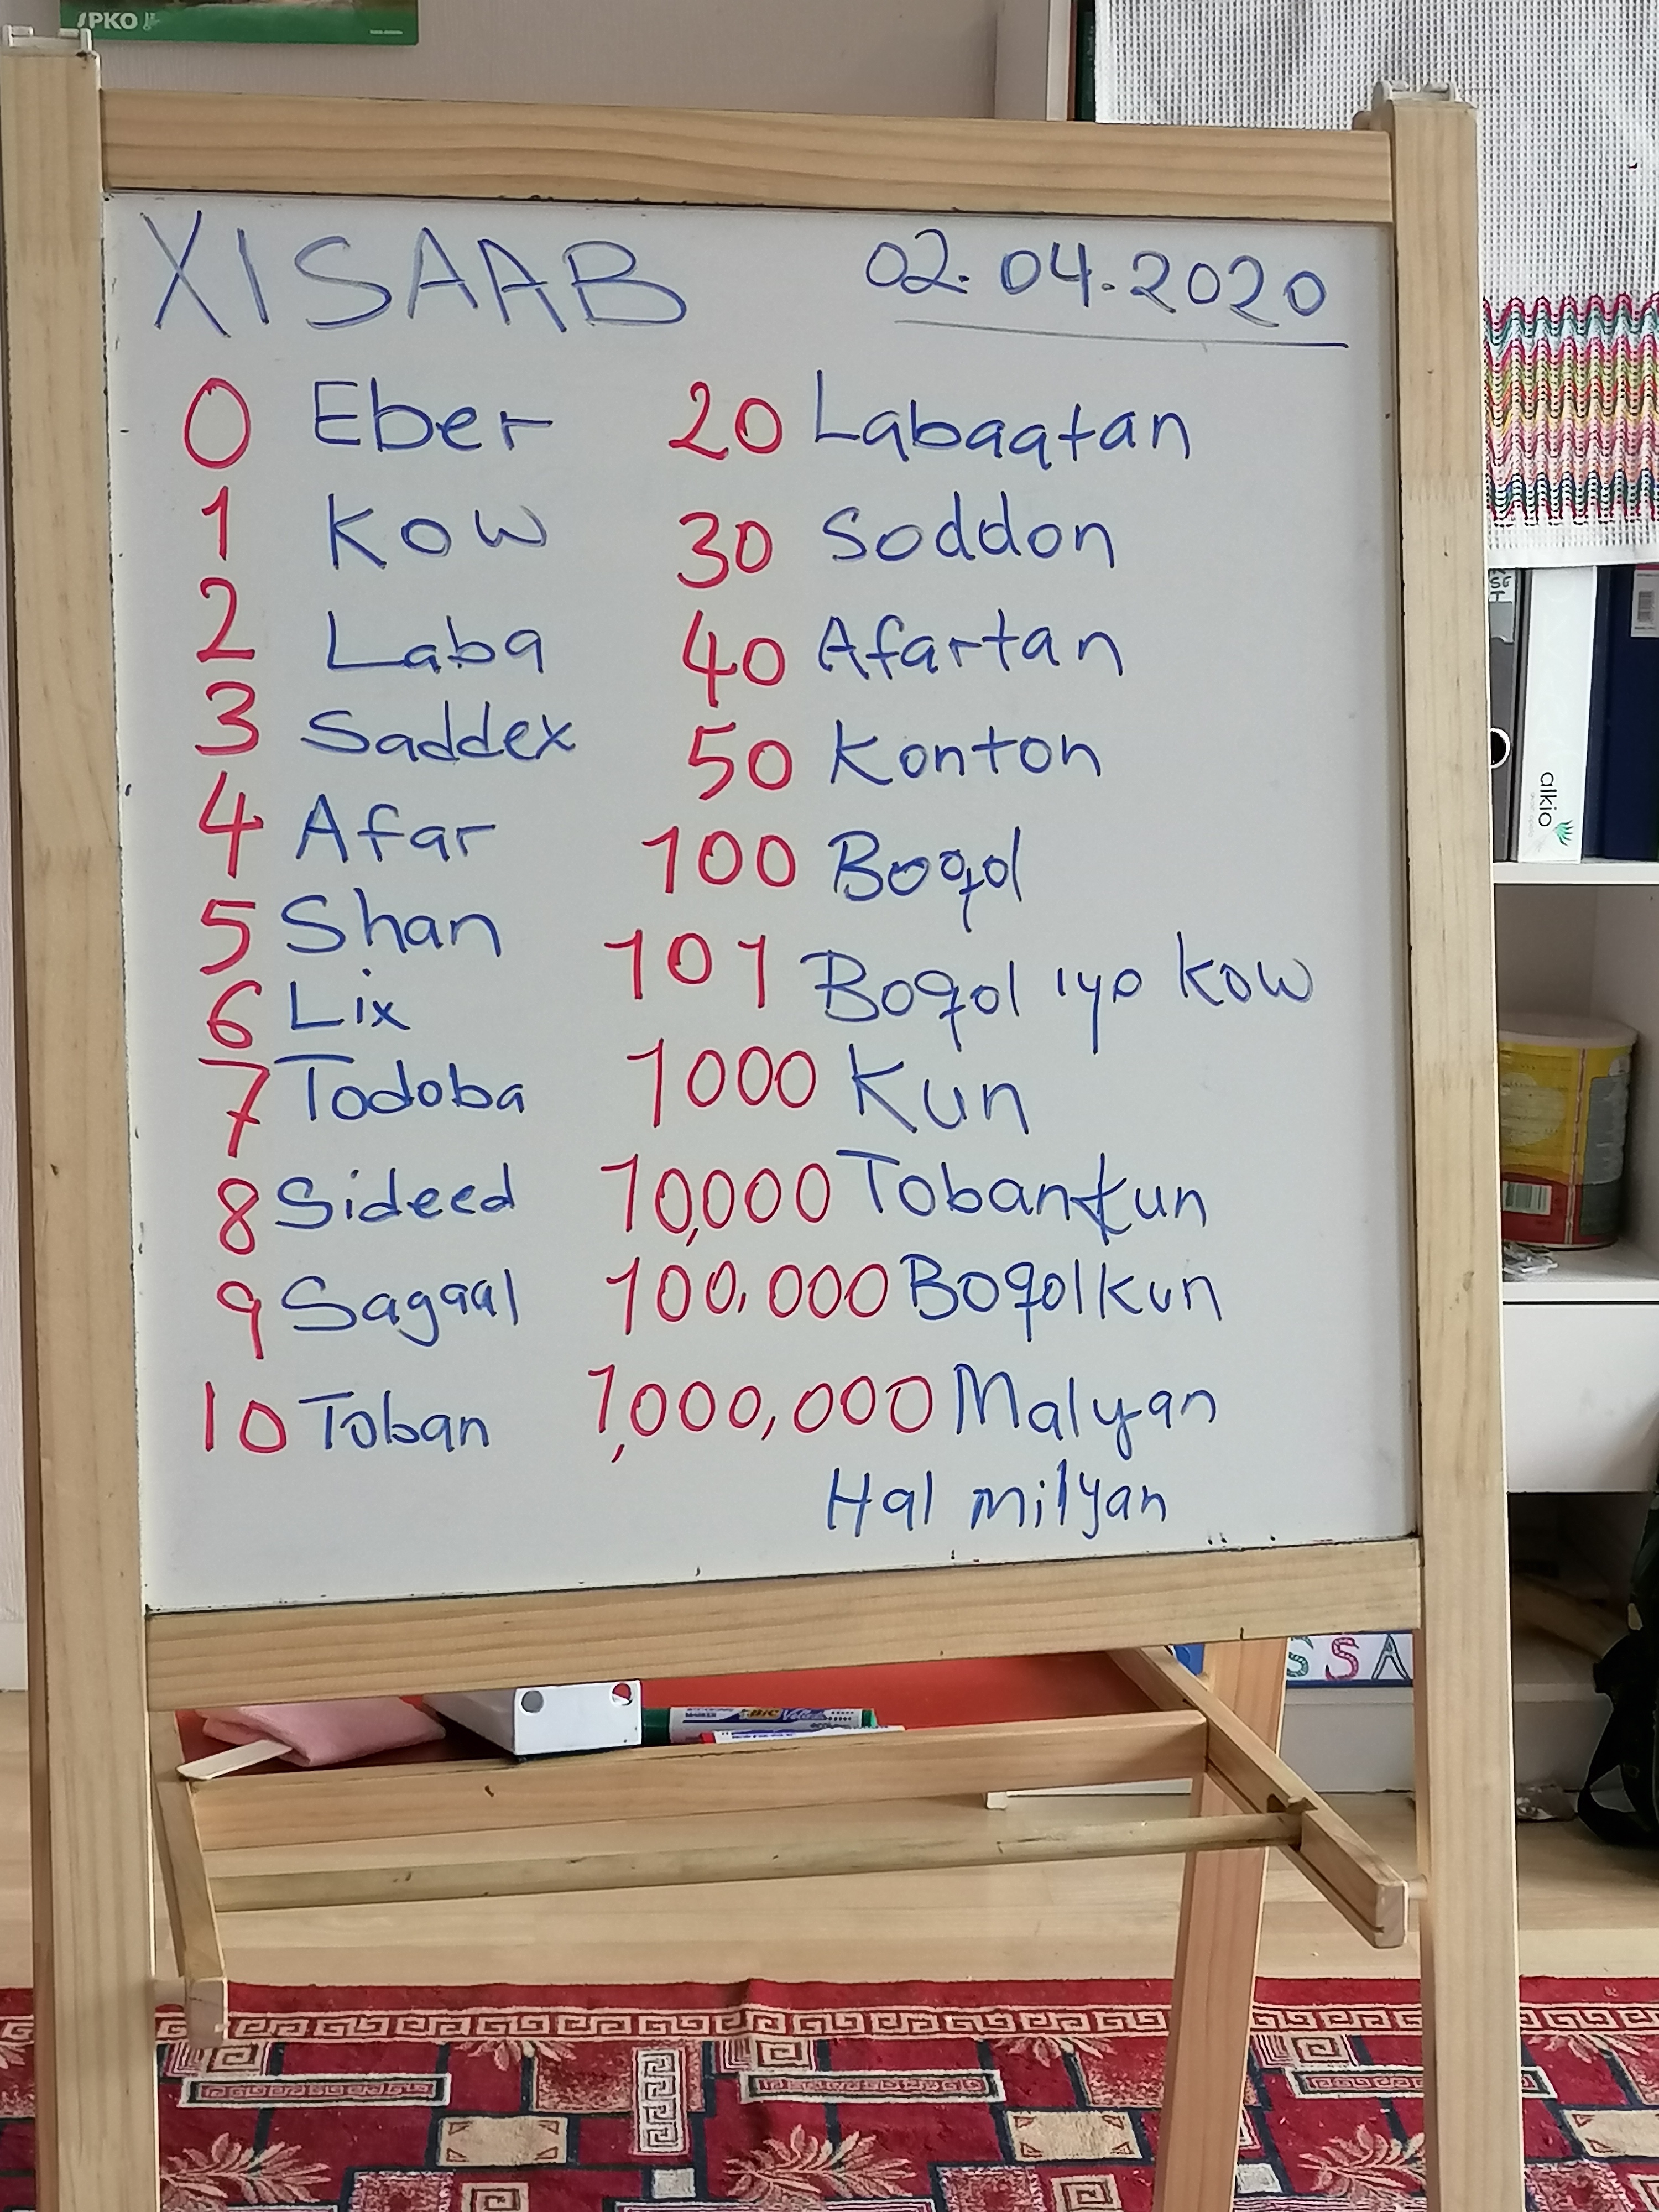 PKO
XISAAB 02.04.2020
0 Eber
1 Kow
2 Laba
3 Saddex
4 Afar
5 Shan
6 Lix
7 Todoba
8 Sideed
9 Sagaal
10 Toban
20 Labaatan
30 Soddon
40 Afartan
50 Konton
100 Boqol
101 Boqol iyo kow
1000 Kun
10,000 Toban kun
100,000 Boqol kun
1,000,000 Malyan
Hal milyan
alkio
SSA
BIC Velleda